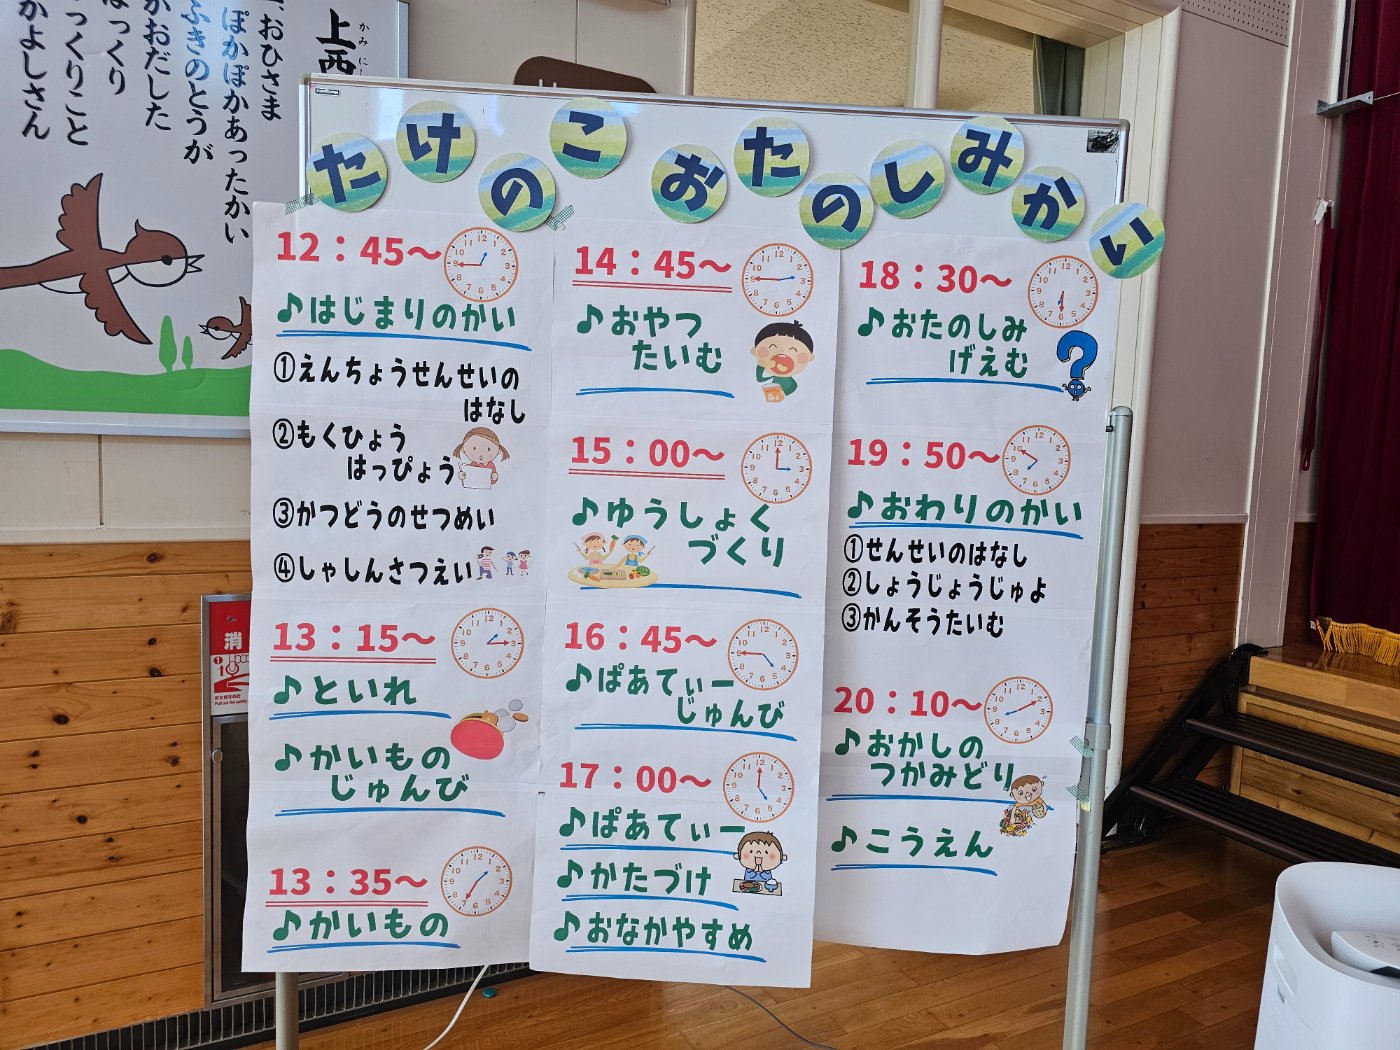 たけのこ おたのしみかい
12：45～
♪はじまりのかい
①えんちょうせんせいの
はなし
②もくひょう
はっぴょう
③かつどうのせつめい
④しゃしんさつえい
13：15～
♪といれ
♪かいもの
じゅんび
13：35～
♪かいもの
14：45～
♪おやつ
たいむ
15：00～
♪ゆうしょく
づくり
16：45～
♪ぱあてぃー
じゅんび
17：00～
♪ぱあてぃー
♪かたづけ
♪おなかやすめ
18：30～
♪おたのしみ
げえむ
19：50～
♪おわりのかい
①せんせいのはなし
②しょうじょうじゅよ
③かんそうたいむ
20：10～
♪おかしの
つかみどり
♪こうえん
上西
かみにし
おひさま
ぽかぽかあったかい
ふきのとうが
かおだした
っくりこと
かよしさん
消